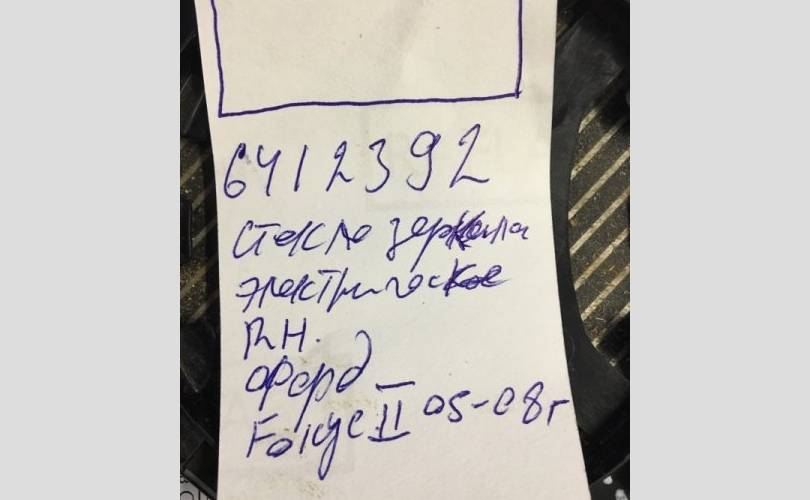 6412392
стекло зеркала
электрическое
R.H.
Форд
Fокус II 05-08г